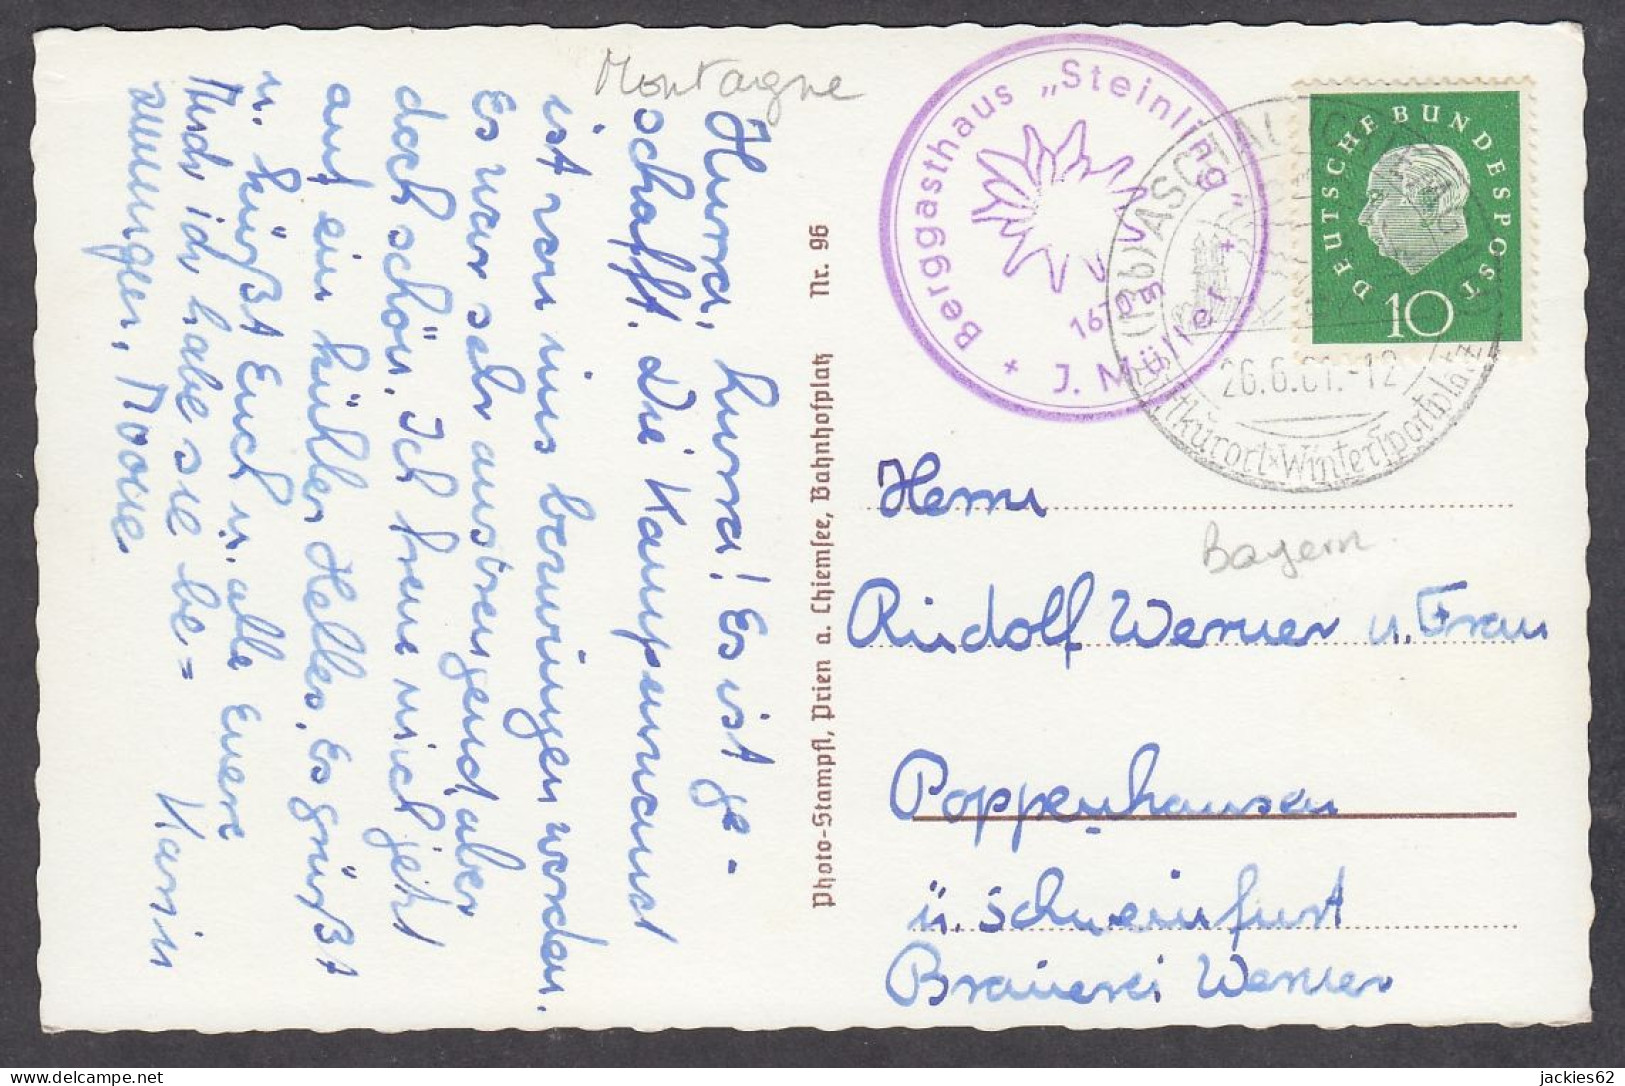 Montagne
Hurra, hurra! Es ist ge-
schafft. Die Kampenwand
ist von uns bezwungen worden.
Es war sehr anstrengend aber
doch schön. Ich freue mich jetzt
auf ein kühles Helles. Es grüßt
u. küßt Euch u. alle Eure Karin
Aush ich habe sie be=
zwungen,
Photo-Stampfl, Prien a. Chiemsee, Bahnhofplatz Nr. 96
* Berggasthaus „Steinling“ *
1670 m
J. Müller
(13b) ASCHAU
26.6.61.-12
Luftkurort * Wintersportplatz
DEUTSCHE BUNDESPOST
10
Herrn
Bayern
Rudolf Werner u. Frau
Poppenhausen
ü. Schweinfurt
Brauerei Werner
jackies62